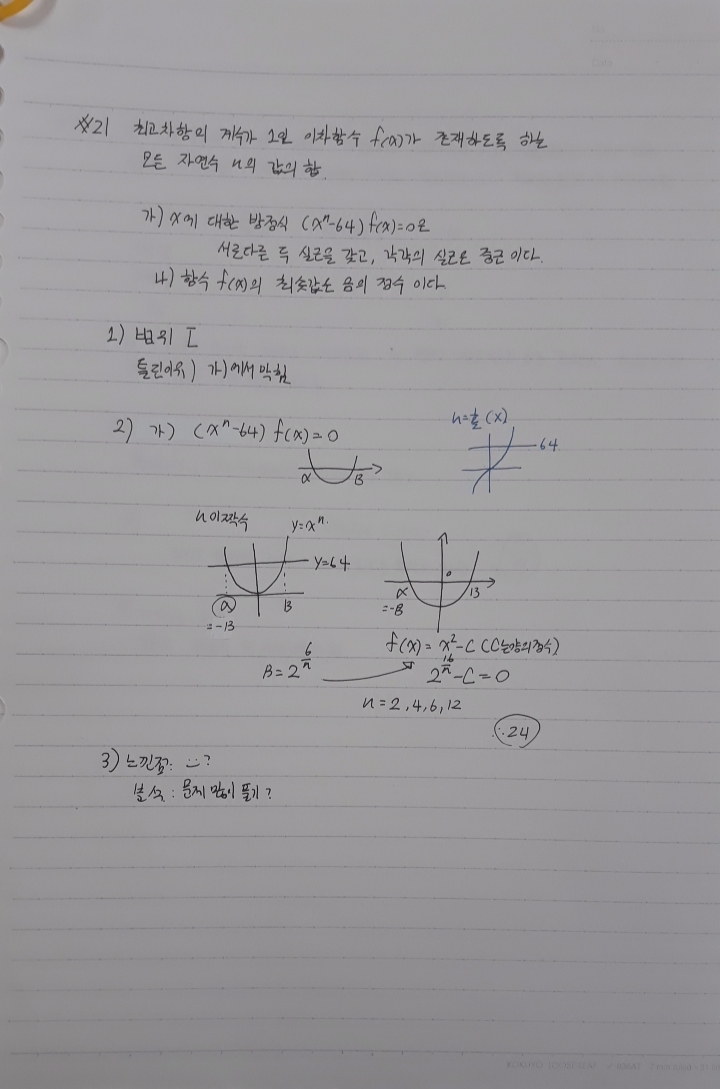 ※21 최고차항의 계수가 1인 이차함수 f(x)가 존재하도록 하는
모든 자연수 n의 값의 합.
가) x에 대한 방정식 (xⁿ-64) f(x)=0은
서로다른 두 실근을 갖고, 각각의 실근은 중근이다.
나) 함수 f(x)의 최솟값은 음의 정수 이다.
1) 범위 I
틀린이유) 가)에서 막힘
2) 가) (xⁿ-64) f(x)=0
α B
n=홀(X)
64
n이짝수 y=xⁿ
y=64
α B
=-B
α B
=-B
f(x)= x²-C (C는양의정수)
B=2^(6/n)
2^(12/n)-C=0
n=2,4,6,12
∴24
3) 느낀점: ?
분석: 문제 많이 풀기?